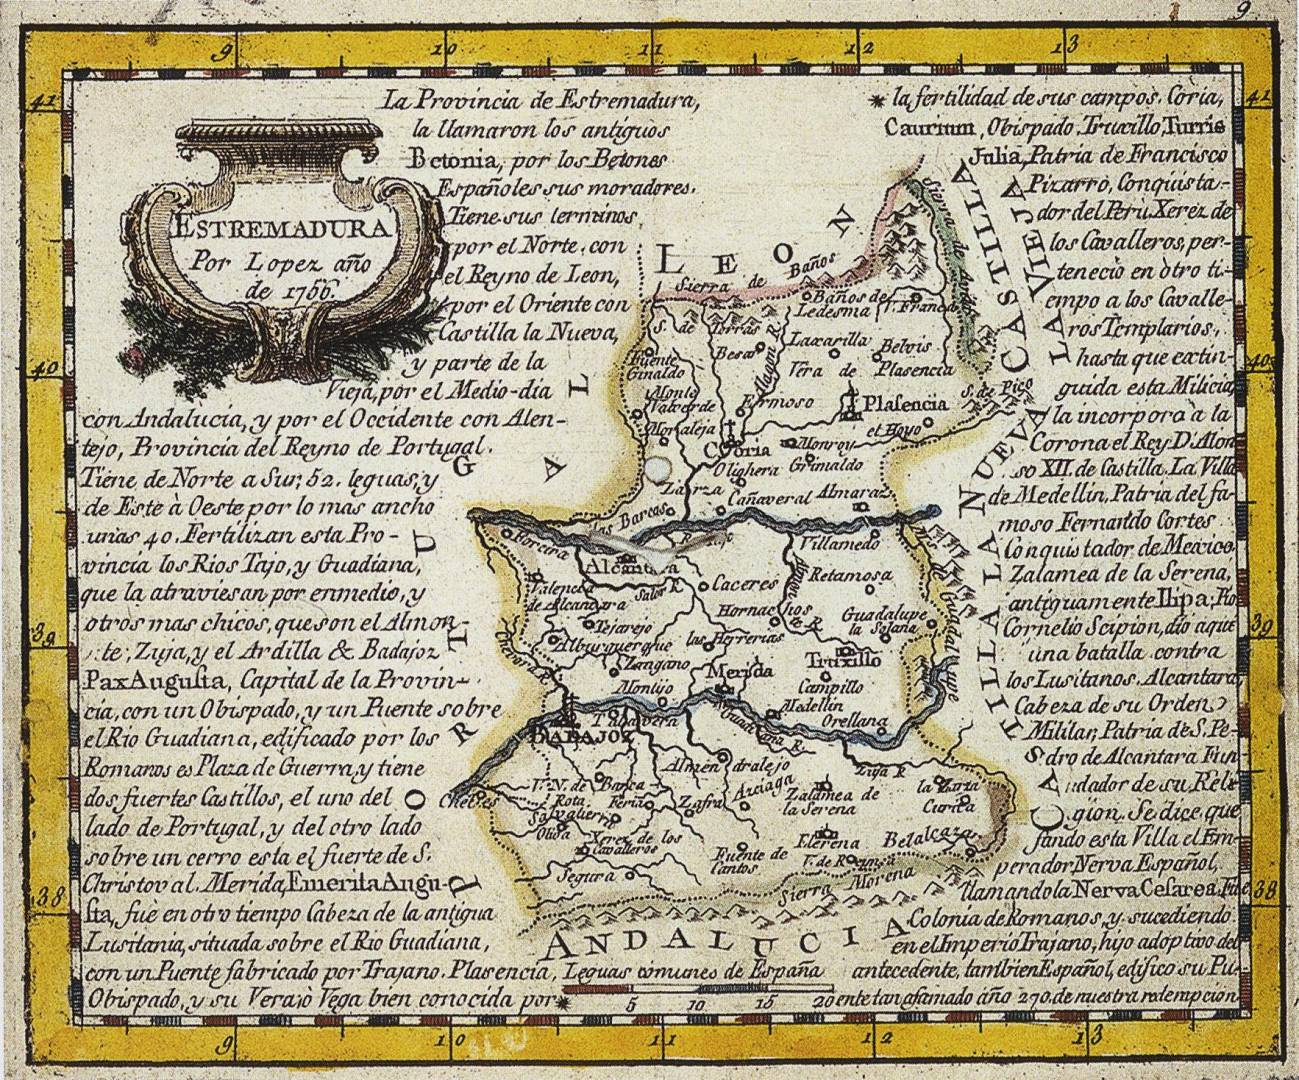 9
9 10 11 12 13
41 41
40 40
39 39
38 38
9 10 11 12 13
ESTREMADURA
Por Lopez año
de 1766.
La Provincia de Estremadura,
la llamaron los antiguos
Betonia, por los Betones
Españoles sus moradores.
Tiene sus terminos
por el Norte, con
el Reyno de Leon,
por el Oriente con
Castilla la Nueva,
y parte de la
Vieja, por el Medio-dia
con Andalucia, y por el Occidente con Alen-
tejo, Provincia del Reyno de Portugal.
Tiene de Norte a Sur; 52. leguas, y
de Este à Oeste por lo mas ancho
unas 40. Fertilizan esta Pro-
vincia los Rios Tajo, y Guadiana,
que la atraviesan por enmedio, y
otros mas chicos, que son el Almon-
te, Zuja, y el Ardilla & Badajoz
Pax Augusta, Capital de la Provin-
cia, con un Obispado, y un Puente sobre
el Rio Guadiana, edificado por los
Romanos es Plaza de Guerra, y tiene
dos fuertes Castillos, el uno del
lado de Portugal, y del otro lado
sobre un cerro esta el fuerte de S.
Christoval. Merida, Emerita Augu-
sta, fuè en otro tiempo Cabeza de la antigua
Lusitania, situada sobre el Rio Guadiana,
con un Puente fabricado por Trajano. Plasencia,
Obispado, y su Vera ò Vega bien conocida por*
* la fertilidad de sus campos. Coria,
Caurium, Obispado, Truxillo, Turris
Julia, Patria de Francisco
Pizarro, Conquista-
dor del Perù. Xerez de
los Cavalleros, per-
teneciò en òtro ti-
empo a los Cavalle-
ros Templarios,
hasta que extin-
guida esta Milicia,
la incorporò à la
Corona el Rey D. Alon
so XII. de Castilla. La Villa
de Medellin, Patria del fa-
moso Fernando Cortes
Conquistador de Mexico.
Zalamea de la Serena,
antiguamente Ilipa;
Cornelio Scipion, dio aque
una batalla contra
los Lusitanos. Alcantara,
Cabeza de su Orden
Militar, Patria de S. Pe-
dro de Alcantara Fun
dador de su Reli-
gion. Se dice que
fundo esta Villa el Em-
perador Nerva Español,
llamandola Nerva Cesarea. Fue
Colonia de Romanos, y sucediendo
en el Imperio Trajano, hijo adoptivo del
antecedente, tambien Español, edifico su Pu-
ente tan afamado año 270. de nuestra redempcion
LEON
PORTUGAL
CASTILLA LA VIEJA
CASTILLA LA NUEVA
ANDALUCIA
Sierra de Baños
Baños de
Ledesma
V. Franca
S. de Torras
Fuente
Ginaldo
Besar
Alagon R.
Laxarilla
Belvis
Vera de Plasencia
Monte
Valverde
Ermoso
Plasencia
S. de Pico
Moraleja
Coria
Monroy
el Hoyo
Olighera
Grimaldo
Larza
Cañaveral
Almaraz
las Barcas
Ferreira
Alcantara
R. Tajo
Villamedo
Salor R.
Caceres
Retamosa
Valencia
de Alcantara
Hornachos
Guadalupe
la Solana
Tejarejo
Alburquerque
las Herrerias
Truxillo
Zangano
Merida
Campillo
Montijo
Medellin
Talavera
Guadiana R.
Orellana
BADAJOZ
Almendralejo
Zuja R.
Chelves
V. N. de Barca
Rota
Feria
Zafra
Arciaga
Zalamea de
la Serena
Salvatierra
Oliva
Xerez de los
Cavalleros
Elerena
Belalcazar
Segura
Fuente de
Cantos
Sierra Morena
Leguas comunes de España
5 10 15 20